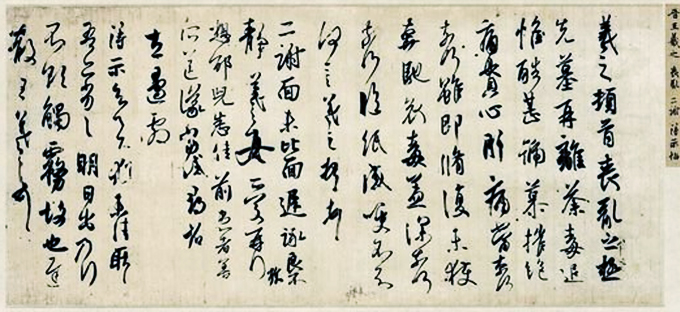 晉王羲之 喪亂 二謝 得示帖
羲之頓首喪亂之極
先墓再離荼毒追
惟酷甚號慕摧絕
痛貫心肝痛當奈何
奈何雖即脩復未獲
奔馳哀毒益深奈何
奈何臨紙感哽不知
何言羲之頓首頓首
二謝面未比面遲詠良不
靜羲之女愛再拜
想邵兒悉佳前患者善
所送議當試尋省
左邊劇
得示知足下猶未佳耿耿
吾亦劣劣明日出乃行
不欲觸霧故也遲
散王羲之頓首